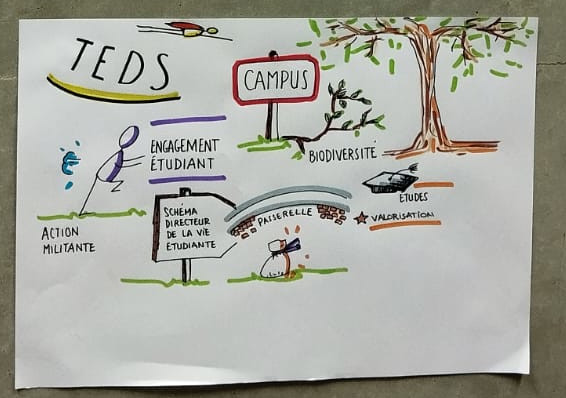 TEDS
CAMPUS
ENGAGEMENT
ÉTUDIANT
BIODIVERSITÉ
ETUDES
VALORISATION
SCHÉMA
DIRECTEUR
DE LA VIE
ETUDIANTE
PASSERELLE
ACTION
MILITANTE